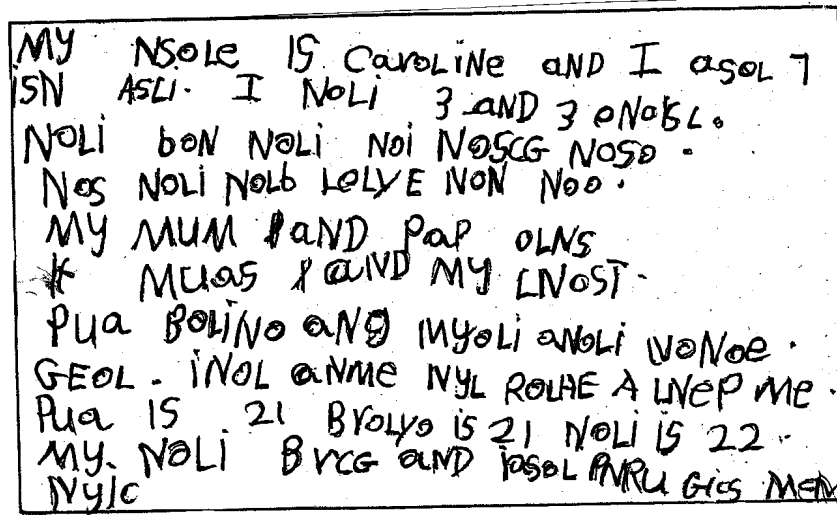 MY NSOLE IS CAROLINE AND I ASOL 7
ISN ASLI. I NOLI 3 AND 3
NOLI bON NOLI NOi NOSCG NOSO.
NOS NOLI NOLb LOLYE NON NOO.
MY MUM AND PAP OLNS
MUAS AND MY LNOST.
PUA BOLINO AND MYOLI ANOLI NONOE.
GEOL. INOL ANME NYL ROLHE A LNEP ME.
PUA IS 21 BrOLYO iS 21 NOLI iS 22.
MY. NOLI BrCG AND GiCS MEN
NYIC